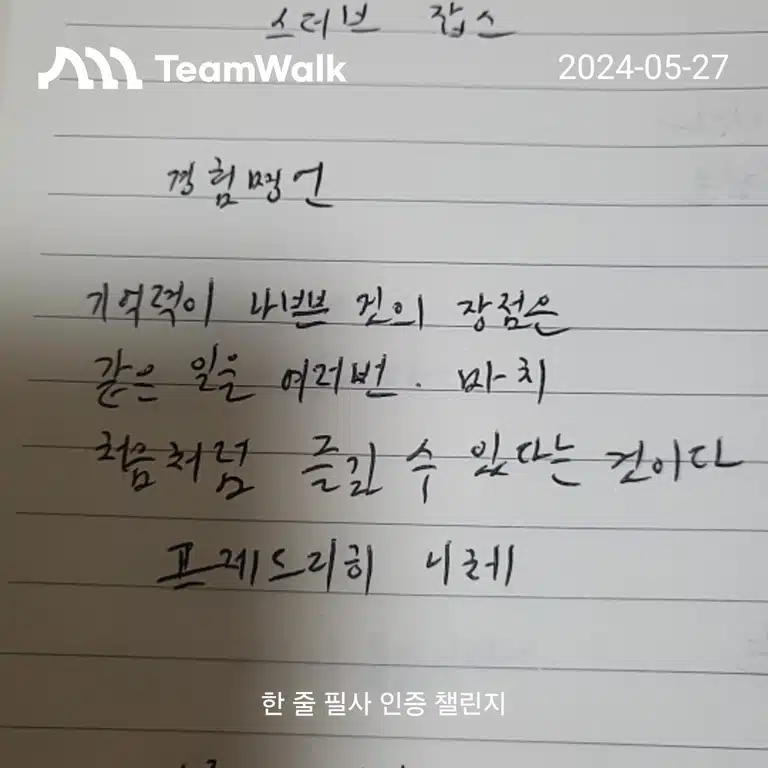 스티브 잡스
TeamWalk
2024-05-27
경험명언
기억력이 나쁜 것의 장점은
같은 일을 여러번. 마치
처음처럼 즐길 수 있다는 것이다
프레드리히 니체
한 줄 필사 인증 챌린지